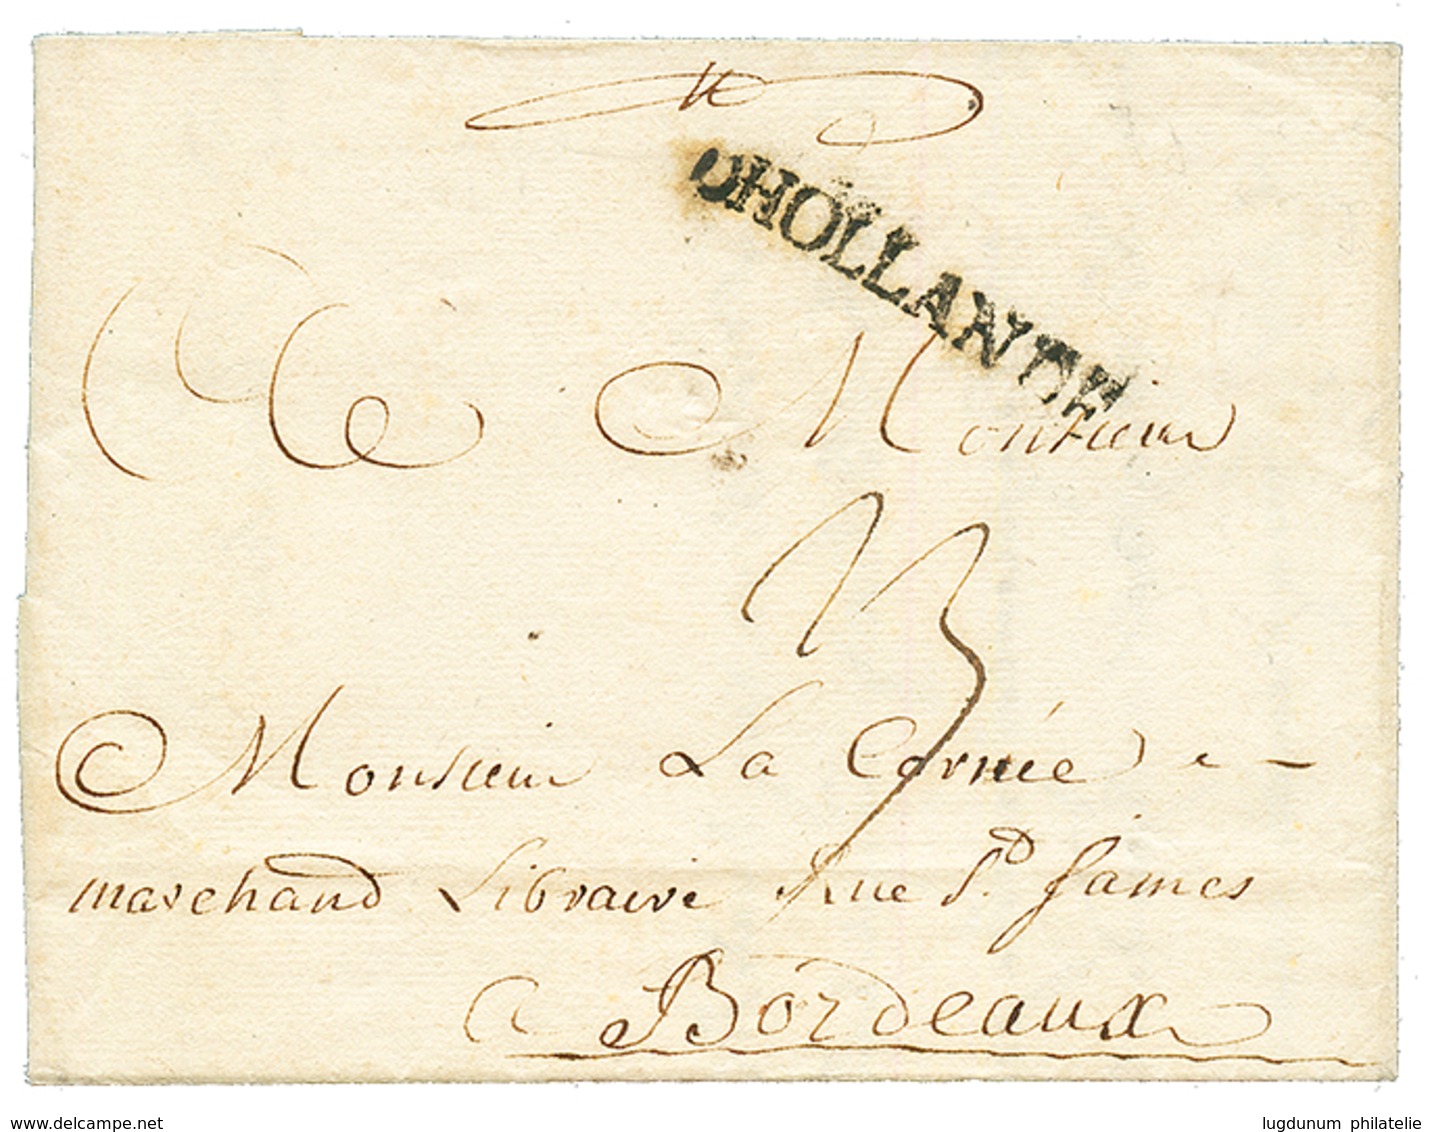 DHOLLANDE
Monsieur
23
Monsieur La Cornée
marchand Libraire Rue St. James
a Bordeaux
www.delcampe.net
lugdunum philatelie